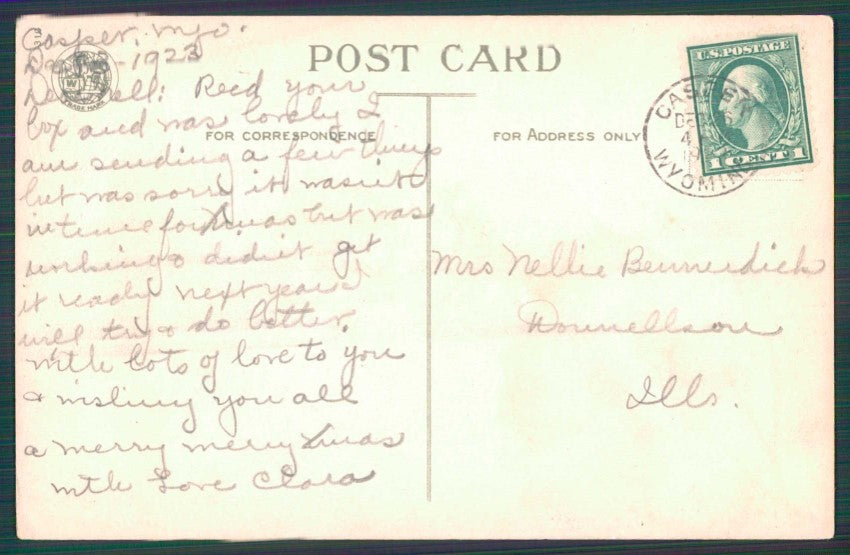 Casper, Wyo.
1923
POST CARD
Dear Nell: Recd your
box and was lovely I
FOR CORRESPONDENCE
am sending a few things
but was sorry it wasn't
in time for Xmas but was
working & didn't get
it ready next year I
will try & do better.
with lots of love to you
& wishing you all
a merry merry Xmas
with Love Clara
TRADE MARK
FOR ADDRESS ONLY
U.S. POSTAGE
1 CENT 1
CASPER
DEC
4
WYOMING
Mrs Nellie Bennerdick
Donnellson
Ills.